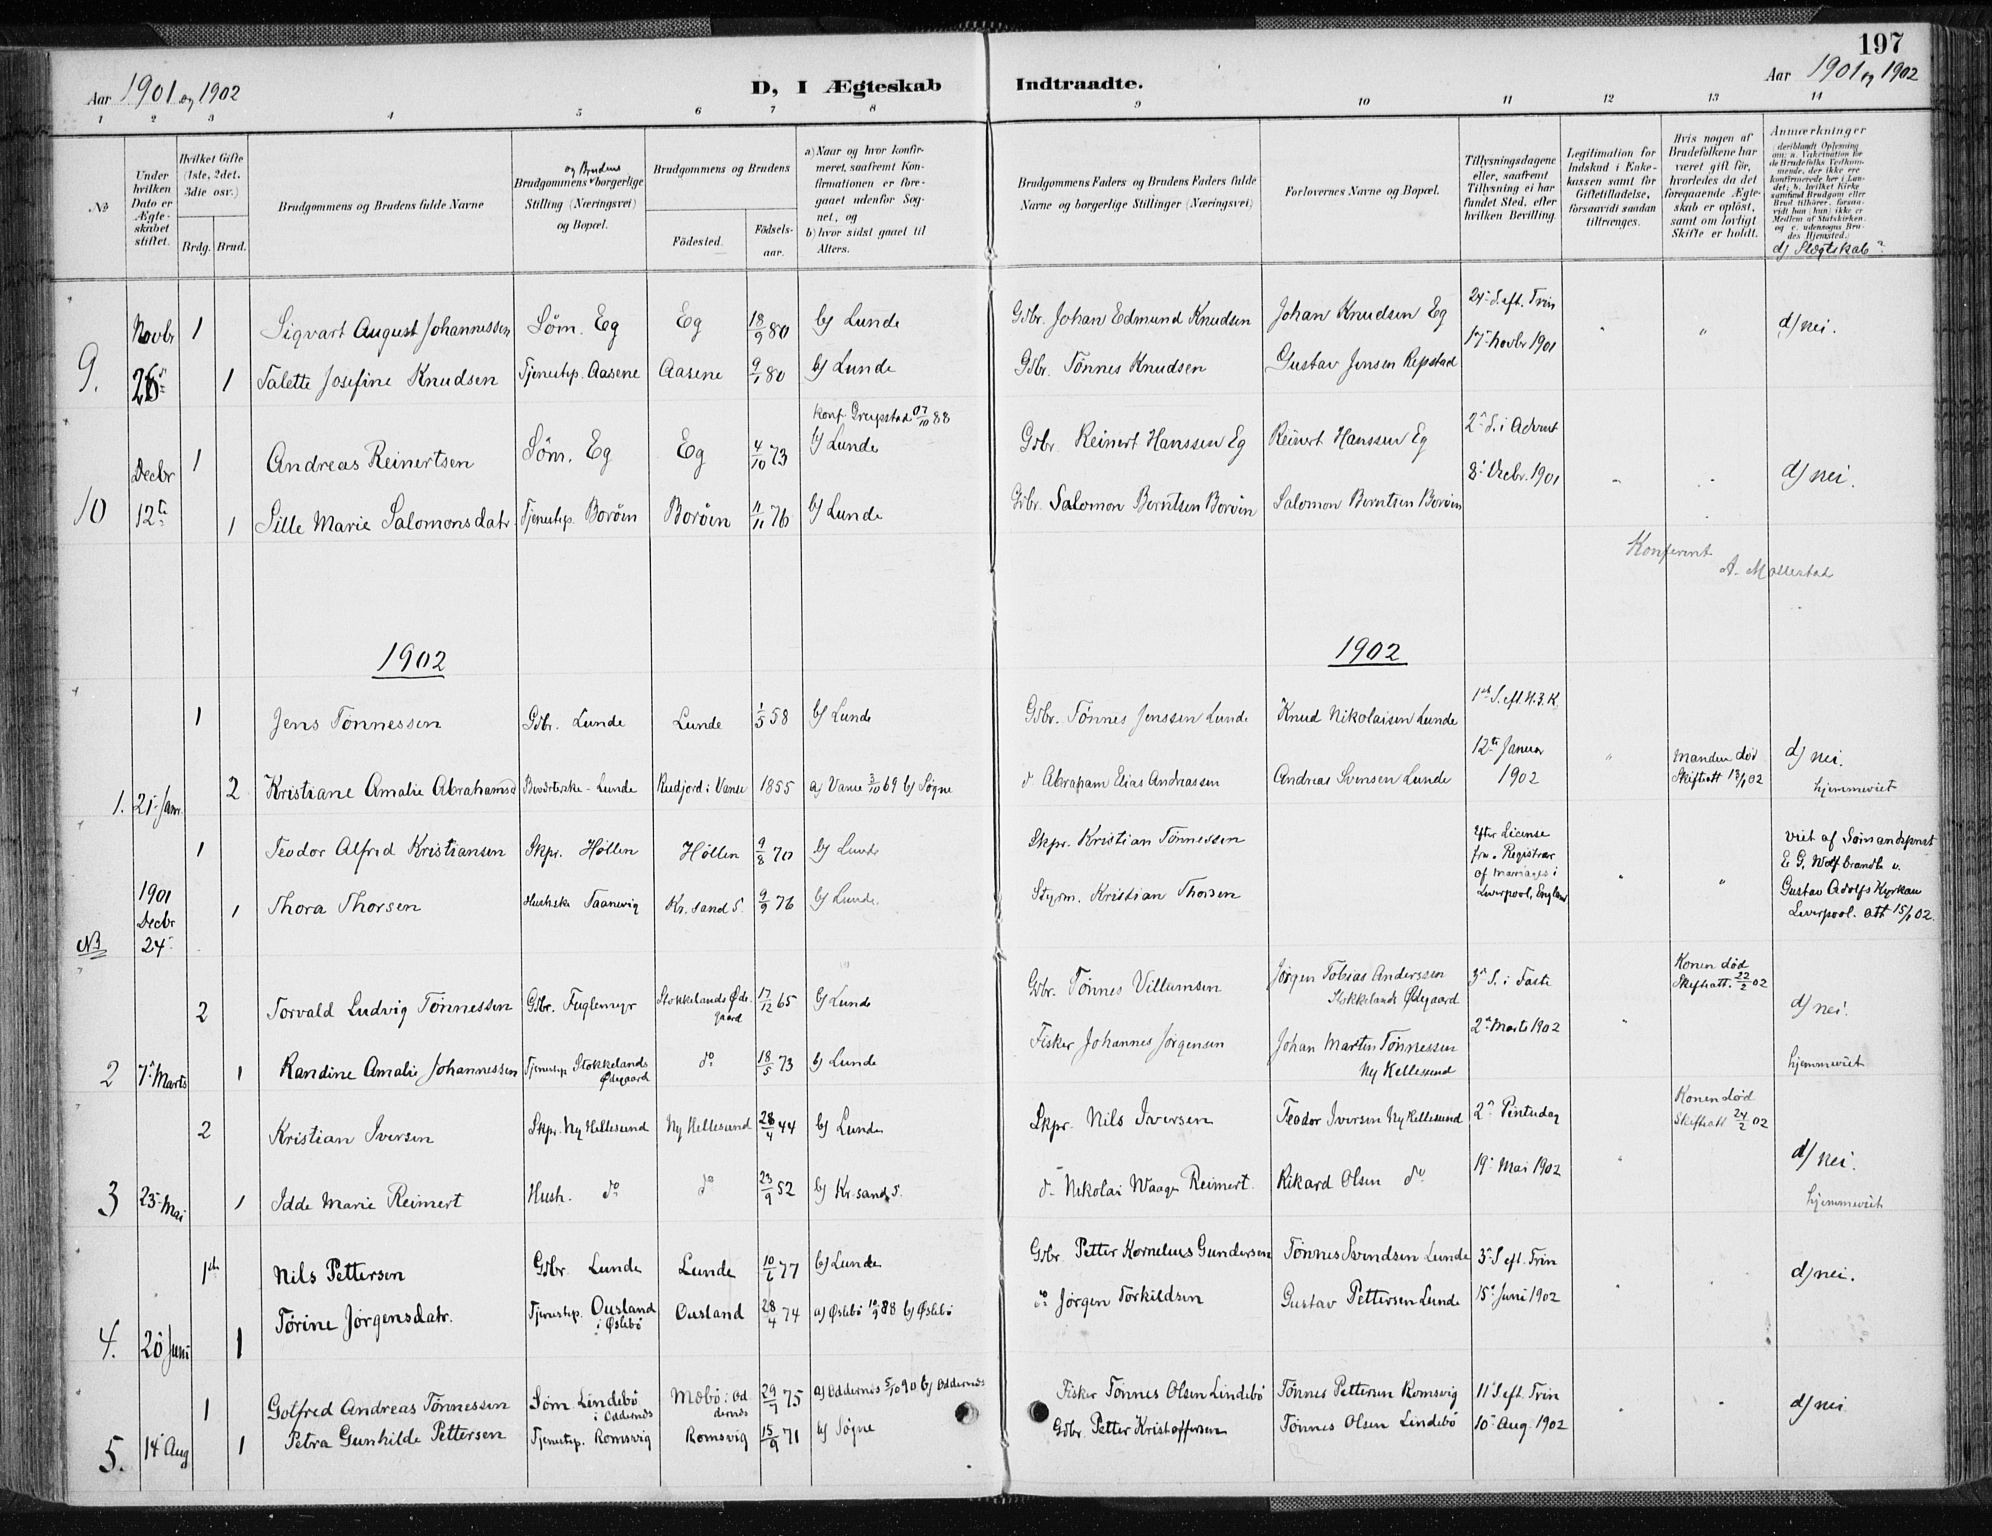 197
Aar 1901 og 1902
D, I Ægteskab Indtraadte.
Aar 1901 og 1902
1 2 3 4 5 6 7 8 9 10 11 12 13 14
No
Under hvilken Dato er Ægteskabet stiftet.
Hvilket Gifte (1ste, 2det, 3die osv.)
Brdg. Brud.
Brudgommens og Brudens fulde Navne
og Brudens
Brudgommens borgerlige Stilling (Næringsvei) og Bopæl.
Brudgommens og Brudens
Fødested.
Fødselsaar.
a) Naar og hvor konfirmeret, saafremt Konfirmationen er foregaaet udenfor Sognet, og
b) hvor sidst gaaet til Alters.
Brudgommens Faders og Brudens Faders fulde Navne og borgerlige Stillinger (Næringsvei)
Forlovernes Navne og Bopæl.
Tillysningsdagene eller, saafremt Tillysning ei har fundet Sted, efter hvilken Bevilling.
Legitimation for Indskud i Enkekassen samt for Giftetilladelse, forsaavidt saadan tiltrænges.
Hvis nogen af Brudefolkene har været gift før, hvorledes da det foregaaende Ægteskab er opløst, samt om lovligt Skifte er holdt.
Anmærkninger (deriblandt Oplysning om: a. Vakcination for de Brudefolks Vedkommende, der ikke ere konfirmerede her i Landet; b. hvilket Kirkesamfund Brudgom eller Brud tilhører, forsaavidt han (hun) ikke er Medlem af Statskirken, og c. udensogns Brudes Hjemsted.)
d) Slægtskab?
9. Novbr 26 1 Sigvart August Johannessen Søm. Eg Eg 18/9 80 b) Lunde Gdbr. Johan Edmund Knudsen Johan Knudsen Eg 24 S. eft. Trin " " d) nei.
1 Talette Josefine Knudsen Tjenestep. Aasene Aasene 9/1 80 b) Lunde Gdbr. Tønnes Knudsen Gustav Jensen Repstad 17 Novbr 1901
10 Decbr 12te 1 Andreas Reinertsen Søm. Eg Eg 4/10 73 konf. Greipstad 07/10 88 b) Lunde Gdbr. Reinert Hanssen Eg Reinert Hanssen Eg 2 S. i Advent 8 Decbr. 1901 d) nei.
1 Sille Marie Salomonsdatr. Tjenestep. Borøen Borøen 11/11 76 b) Lunde Gdbr. Salomon Berntsen Borøen Salomon Berntsen Borøen
Konferert
A. Mollestad
1902
1902
1. 21 Janr. 1 Jens Tønnessen Gdbr. Lunde Lunde 1/5 58 b) Lunde Gdbr. Tønnes Jenssen Lunde Knud Nikolaisen Lunde 1ste S. eft. H. 3. K.
2 Kristiane Amalie Abrahamsd Lunde i Vanse 1855 a) Vanse 3/10 69 b) Søgne do Abraham Elias Andreassen Andreas Svensen Lunde 12te Januar 1902 " Manden død Skifteatt 13/1 02 d) nei. hjemmeviet
NB 1901 Decbr 24 1 Teodor Alfred Kristiansen Skpr. Høllen Høllen 9/8 70 b) Lunde Skpr. Kristian Tønnessen Efter License fra Registrar of marriages i Liverpool, England " " viet af Sømandsprest E. G. v. Gustav Adolfs Kyrkan Liverpool. att 15/1 02.
1 Thora Thorsen Taanevig Kr.sand S. 9/9 76 b) Lunde. Styrm. Kristian Thorsen
2 7 Marts 2 Torvald Ludvig Tønnessen Gdbr. Fuglemyr Stokkelands Ødegaard 17/12 65 b) Lunde Gdbr. Tønnes Villumsen Jørgen Tobias Anderssen Stokkelands Ødegaard 3 S. i Faste " Konen død Skifteatt. 22/2 02 d) nei.
1 Randine Amalie Johannessen Tjenestep Stokkelands Ødegaard do 18/5 73 b) Lunde Fisker Johannes Jørgensen Johan Martin Tønnessen Ny Hellesund 2 Marts 1902 hjemmeviet
3 23 Mai 2 Kristian Iversen Skpr. Ny Hellesund Ny Hellesund 28/4 44 b) Lunde Skpr. Nils Iversen Teodor Iversen Ny Hellesund 2 Pintsedag Konen død Skifteatt 24/2 02 d) nei.
1 Idde Marie Reimert Hush. do do 23/9 52 b) Kr.sand S. do Nikolai Waage Reimert. Rikard Olsen do 19 Mai 1902 hjemmeviet
4. 20 Juni 1ste Nils Pettersen Gdbr. Lunde Lunde 10/6 77 b) Lunde Gdbr. Petter Kornelius Gundersen Tønnes Svendsen Lunde 3 S. eft. Trin d) nei.
1 Tørine Jørgensdatr. Tjenestep. Ousland i Øslebø Ousland 28/4 74 a) Øslebø 10/9 88 b) Øslebø do Jørgen Torkildsen Gustav Pettersen Lunde 15 Juni 1902
5. 14 Aug 1 Golfred Andreas Tønnessen Søm. Lindebø i Oddernes Mæbø i Oddernes 29/7 75 a) Oddernes 5/10 90 b) Oddernes Fisker Tønnes Olsen Lindebø Tønnes Pettersen Romsvig 11 S. eft. Trin d) nei
1 Petra Gunhilde Pettersen Tjenestep. Romsvig Romsvig 15/9 71 b) Søgne Gdbr. Petter Kristoffersen Tønnes Olsen Lindebø 10 Aug. 1902